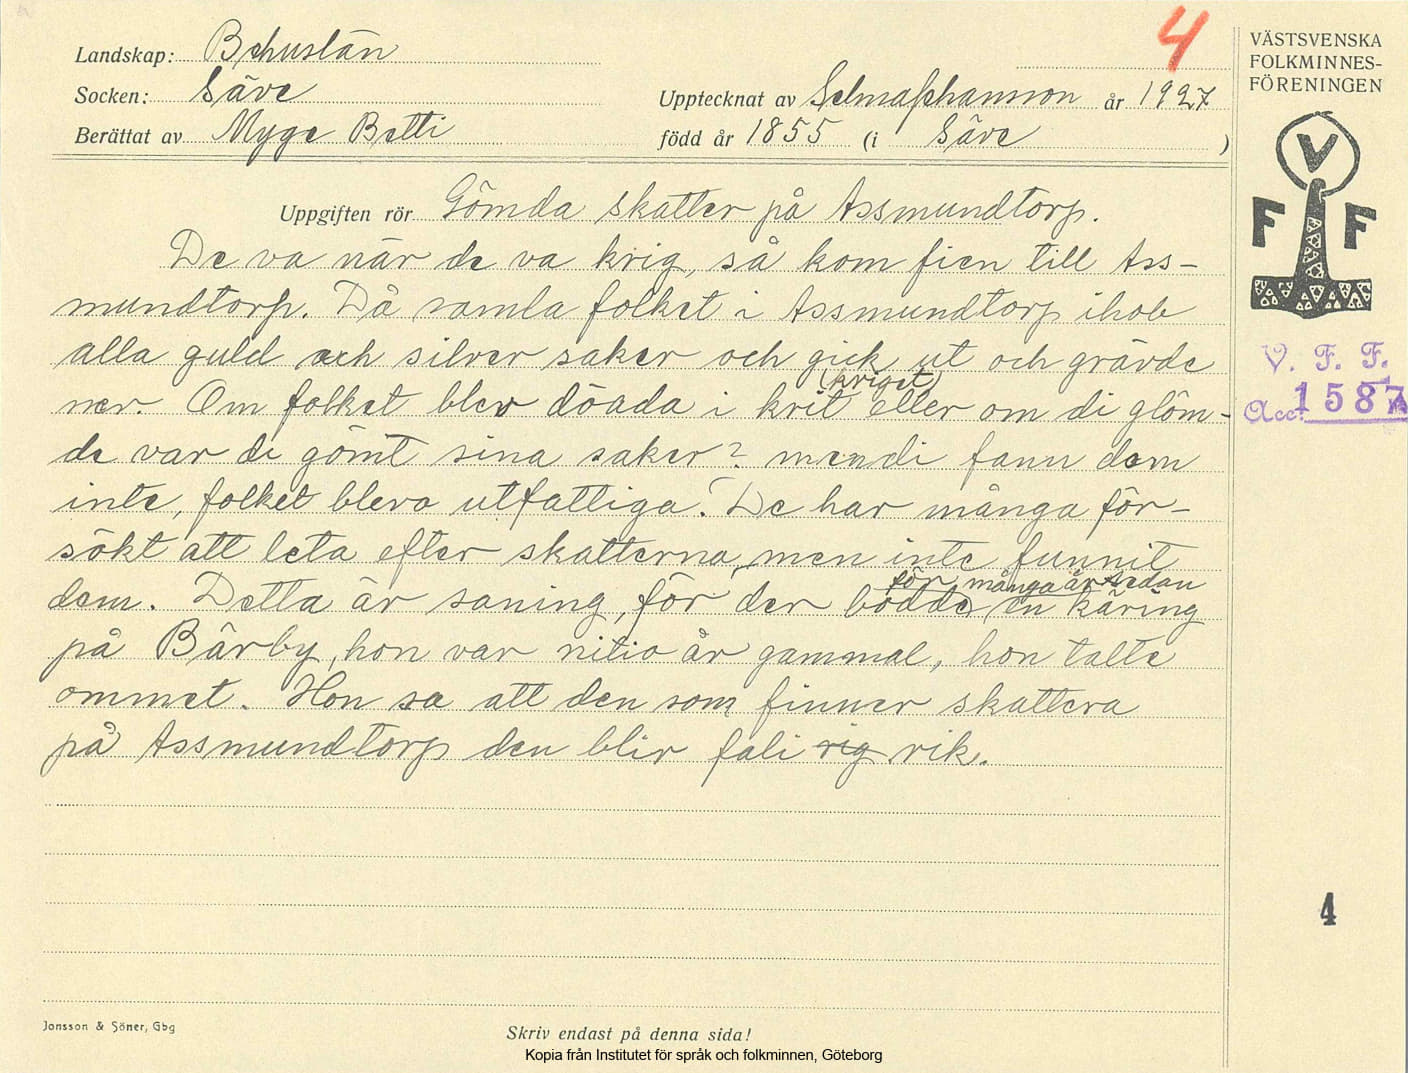 4
Landskap: Bohuslän
Socken: Säve
Upptecknat av Selma Johansson år 1927
Berättat av Myge Betti född år 1855 (i Säve )
VÄSTSVENSKA
FOLKMINNES-
FÖRENINGEN
V
F F
V. F. F.
Acc. 1587
Uppgiften rör Gömda skatter på Assmundtorp.
De va när de va krig, så kom fien till Ass-
mundtorp. Då samla folket i Assmundtorp ihob
alla guld och silver saker och gick ut och grävde
ner. Om folket blev döada i krit (kriget) eller om di glöm-
de var di gömt sina saker? men di fann dom
inte, folket blevo utfattiga. De har många för-
sökt att leta efter skatterna, men inte funnit
dem. Detta är saning, för der bodde för många år sedan en käring
på Bärby, hon var nitio år gammal, hon talte
ommet. Hon sa att den som finner skattera
på Assmundtorp den blir fali rig rik.
4
Jonsson & Söner, Gbg
Skriv endast på denna sida!
Kopia från Institutet för språk och folkminnen, Göteborg